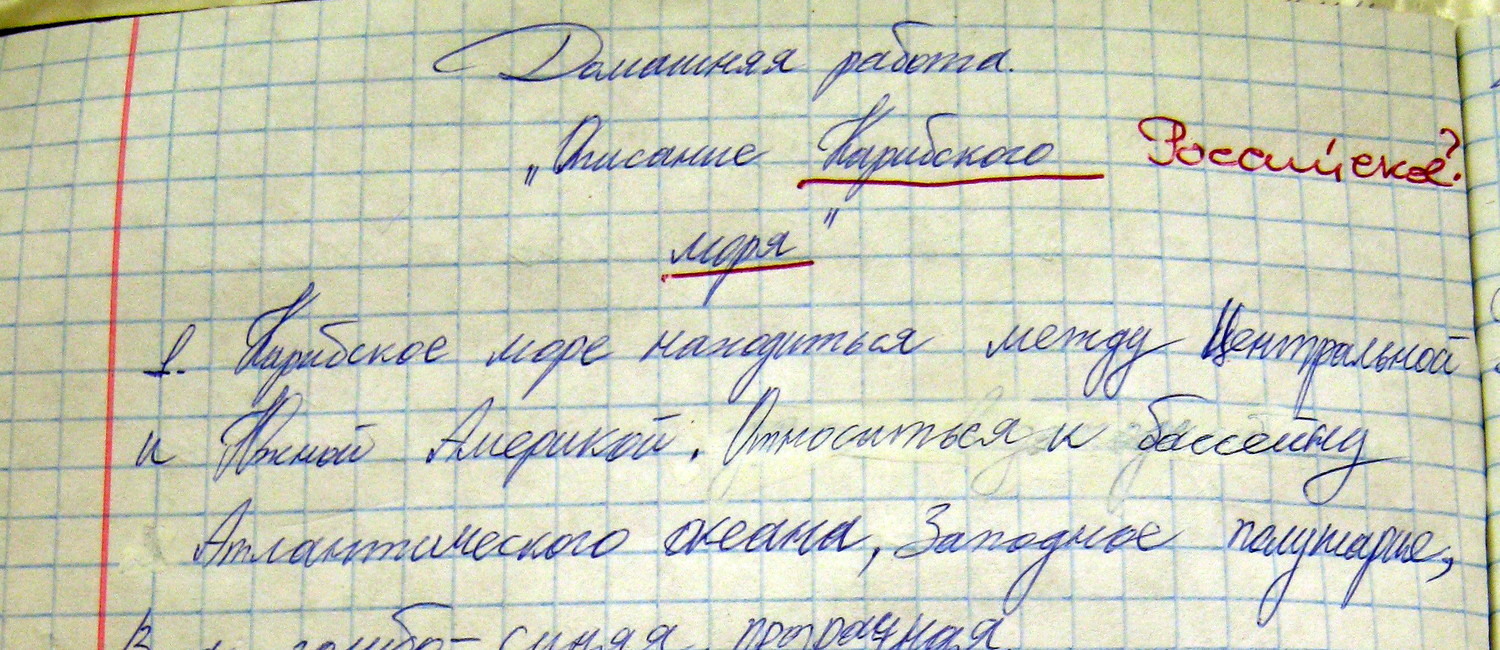 Домашняя работа.
„Описание Карибского Российское?
моря"
1. Карибское море находиться между Центральной
и Южной Америкой. Относиться к бассейну
Атлантического океана, Западное полушарие,
голубо-синяя, прозрачная